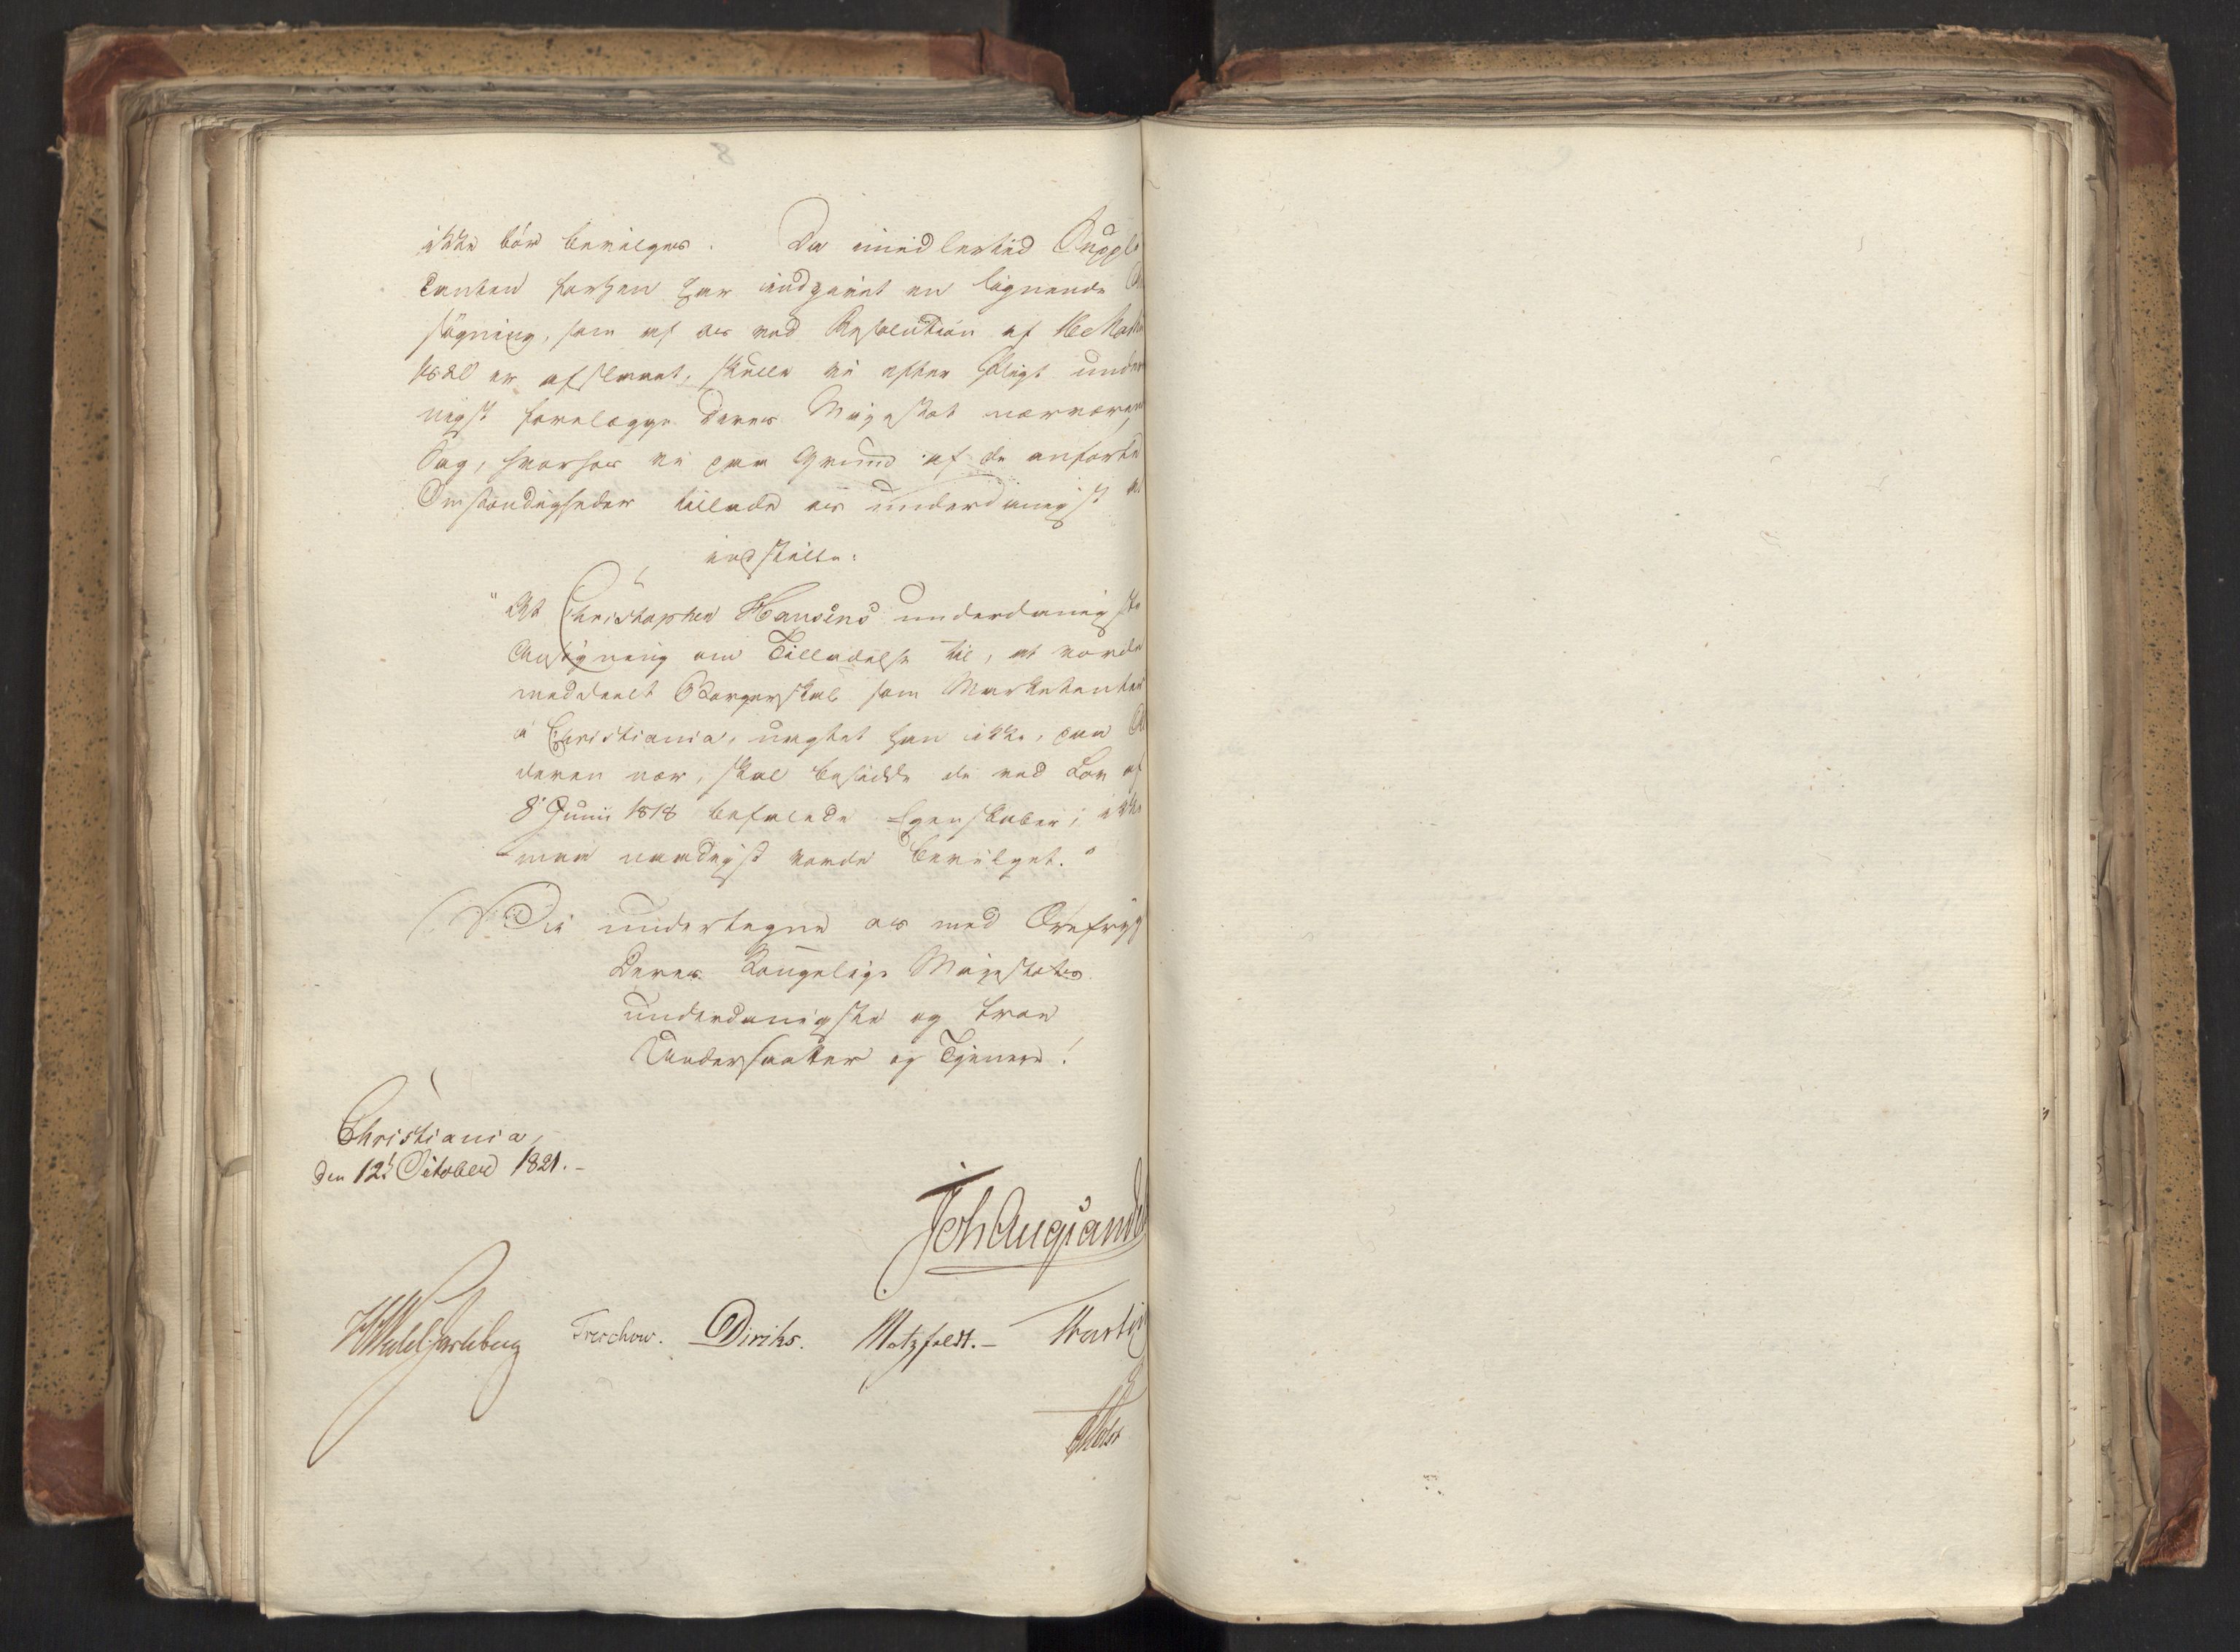 ikke bör bevilges. Da imidlertid Suppli
canten forhen har indgivet en lignende An
sögning, som af os ved Resolution af 16 Marts
1820 er afslaaet, skulle vi efter Pligt underda
nigst forelægge Deres Majestæt nærværende
Sag, hvorhos vi paa Grund af de anförte
Omstændigheder tillade os underdanigst at
indstille:
"At Christopher Hansens underdanigste
Ansögning om Tilladelse til, at vorde
meddeelt Borgerskab som Marketenter
i Christiania, uagtet han ikke, paa
deren nær, skal besidde de ved Lov af
8de Junii 1818 befalede Egenskaber, ikke
maa naadigst vorde bevilget."
Vi undertegne os med Ærefrygt
Deres Kongelige Majestæts
underdanigste og troe
Undersaatter og Tjenere!
Christiania,
den 12t October 1821.-
Joh Aug Sandels
HWedel Jarlsberg Treschow. Diriks. Motzfeldt.- Fasting